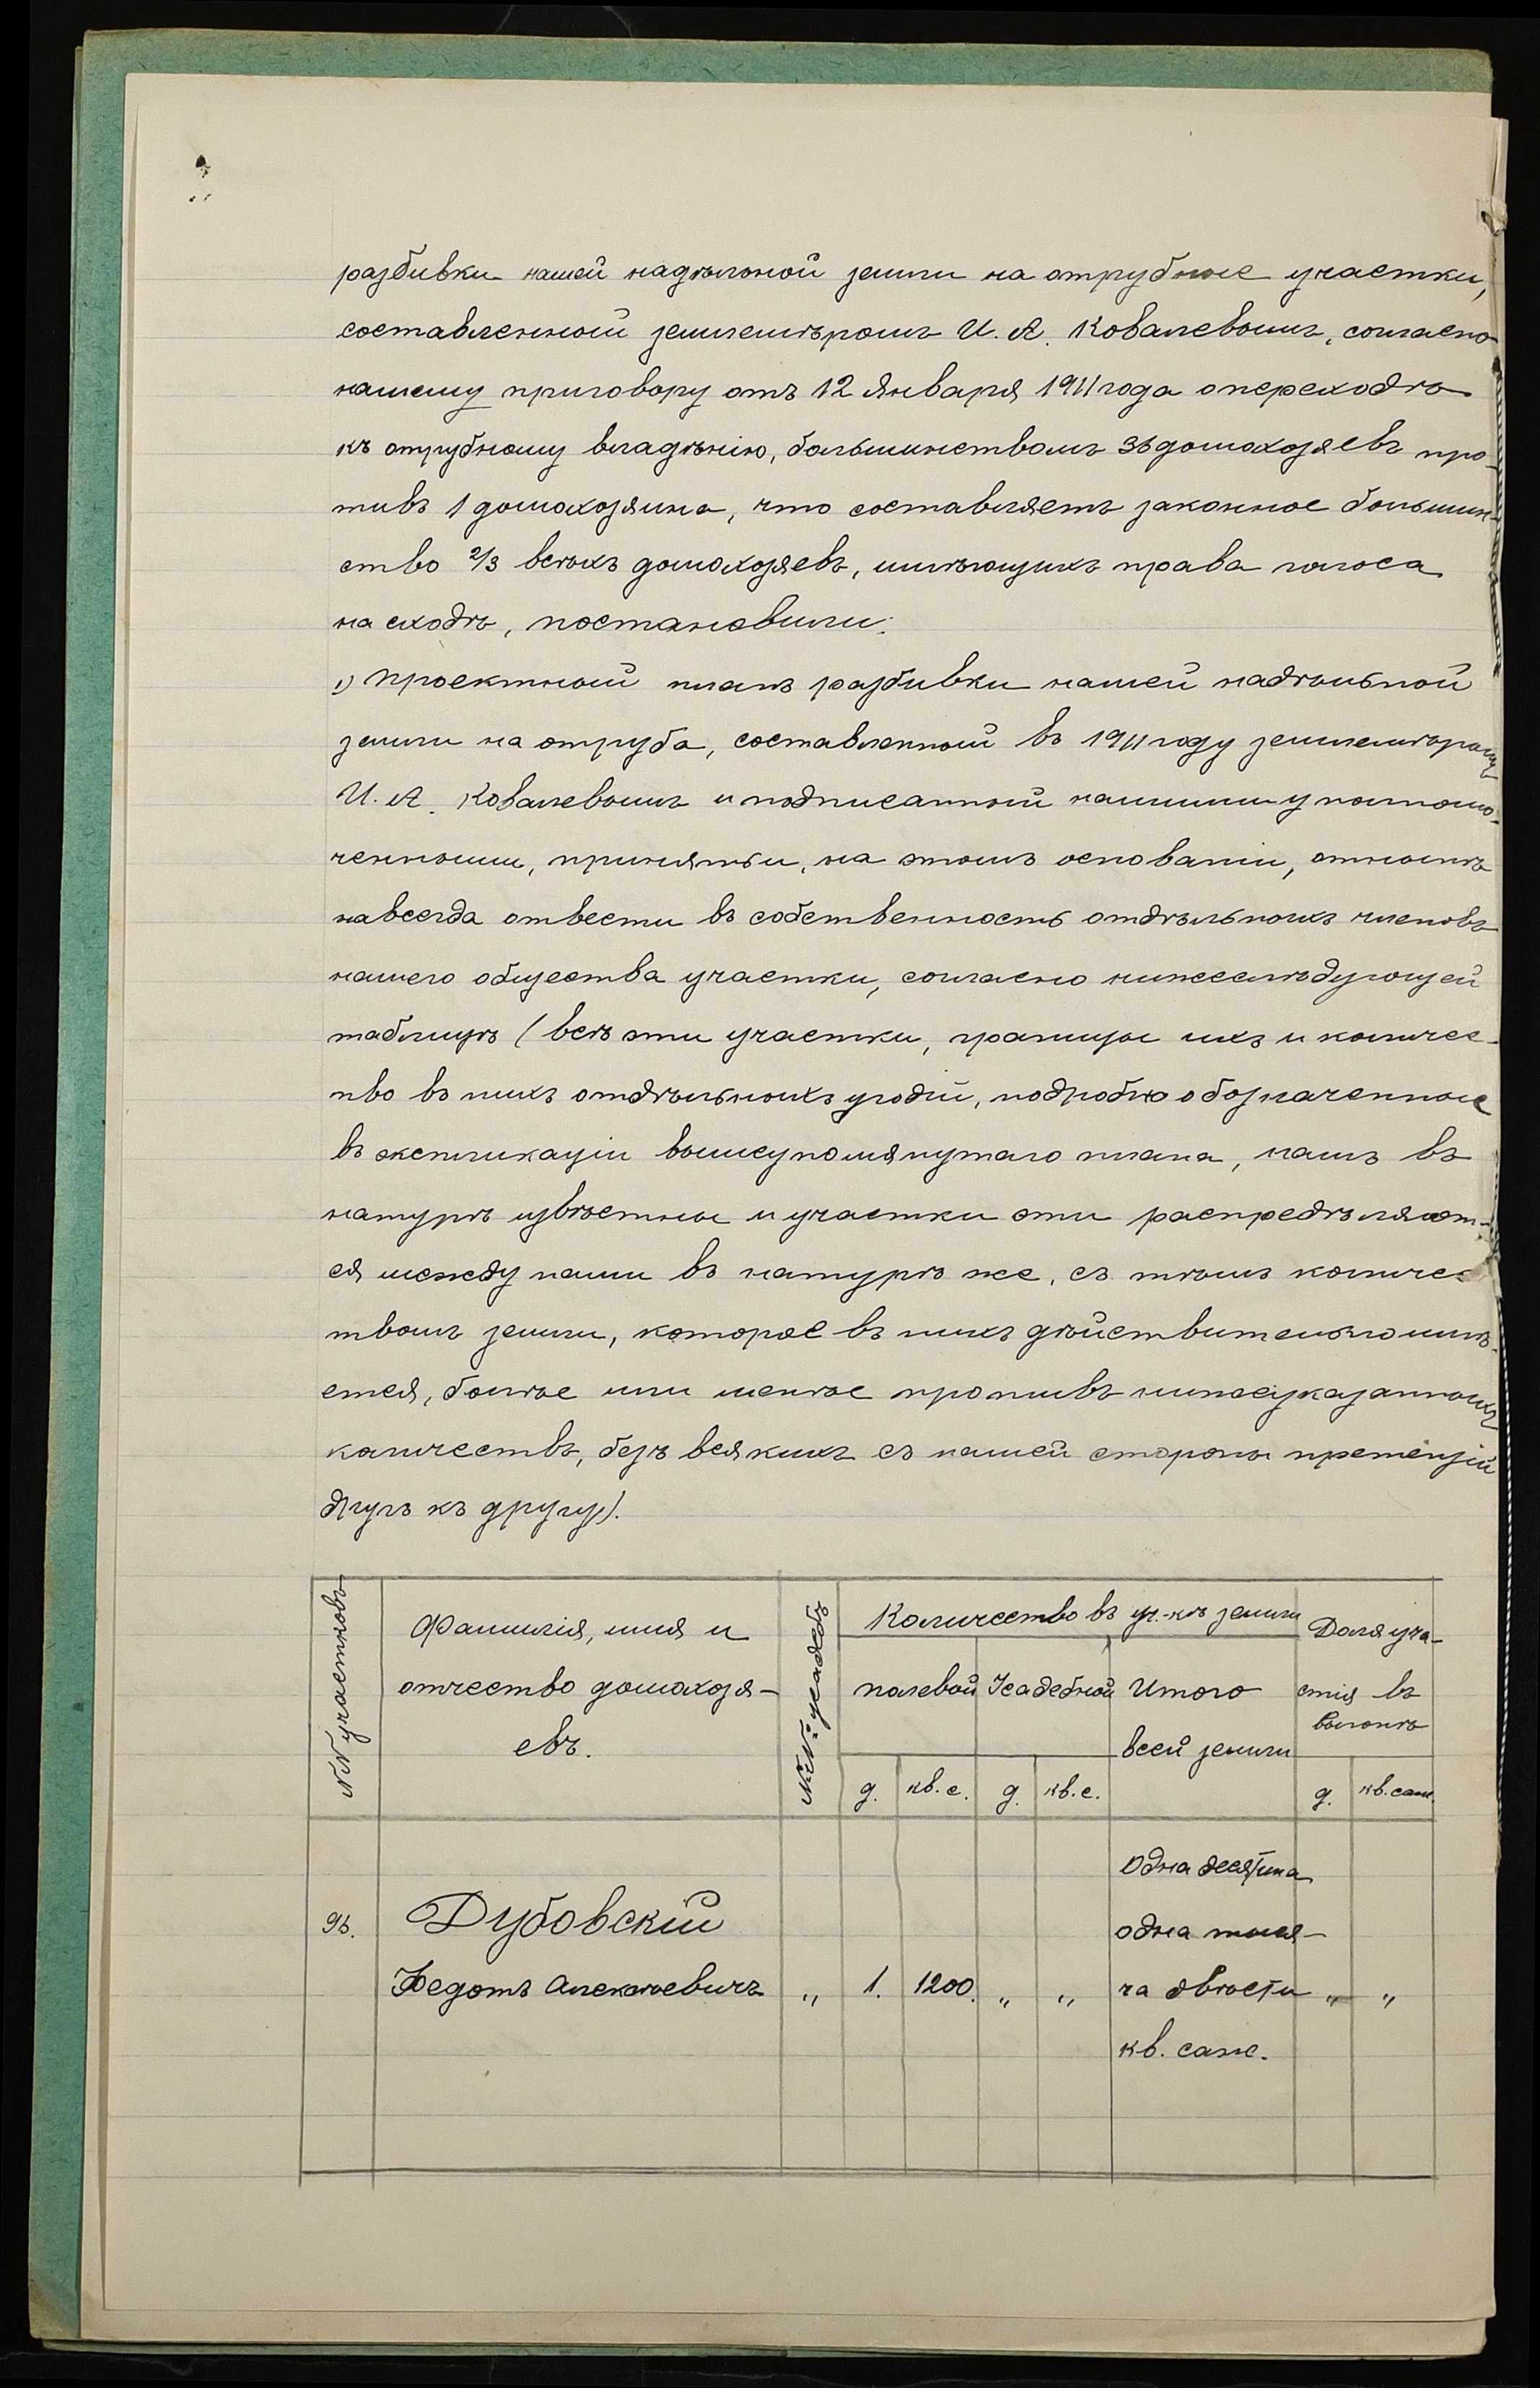 разбивки нашей надѣльной земли на отрубные участки,
составленный землемѣромъ И. А. Ковалевымъ, согласно
нашему приговору отъ 12 Января 1911 года о переходѣ
къ отрубному владѣнію, большинствомъ 36 домохозяевъ про-
тивъ 1 домохозяина, что составляетъ законное большин-
ство 2/3 всѣхъ домохозяевъ, имѣющихъ права голоса
на сходѣ, постановили:
1) Проектный планъ разбивки нашей надѣльной
земли на отруба, составленный въ 1911 году землемѣромъ
И. А. Ковалевымъ и подписанный нашими уполномо-
ченными, принять и, на этомъ основаніи, отнынѣ
навсегда отвести въ собственность отдѣльныхъ членовъ
нашего общества участки, согласно нижеслѣдующей
таблицѣ (всѣ эти участки, границы ихъ и количес-
тво въ нихъ отдѣльныхъ угодій, подробно обозначенные
въ экспликаціи вышеупомянутаго плана, намъ въ
натурѣ извѣстны и участки эти распредѣляют-
ся между нами въ натурѣ же, съ тѣмъ количес
твомъ земли, которое въ нихъ дѣйствительно имѣ-
ется, болѣе или менѣе противъ нижеуказанныхъ
количествъ, безъ всякихъ съ нашей стороны претензій
другъ къ другу).
№№ участковъ
Фамилія, имя и
отчество домохозя-
евъ.
№№ усадебъ
Количество въ уч.-кѣ земли
полевой Усадебной Итого
всей земли
Доля уча-
стія въ
выгонѣ
д. кв. с. д. кв. с. д. кв. саж.
Одна десятина
96. Дубовскій одна тыся-
Федотъ Алексѣевичъ " 1. 1200. " " ча двѣсти " "
кв. саж.